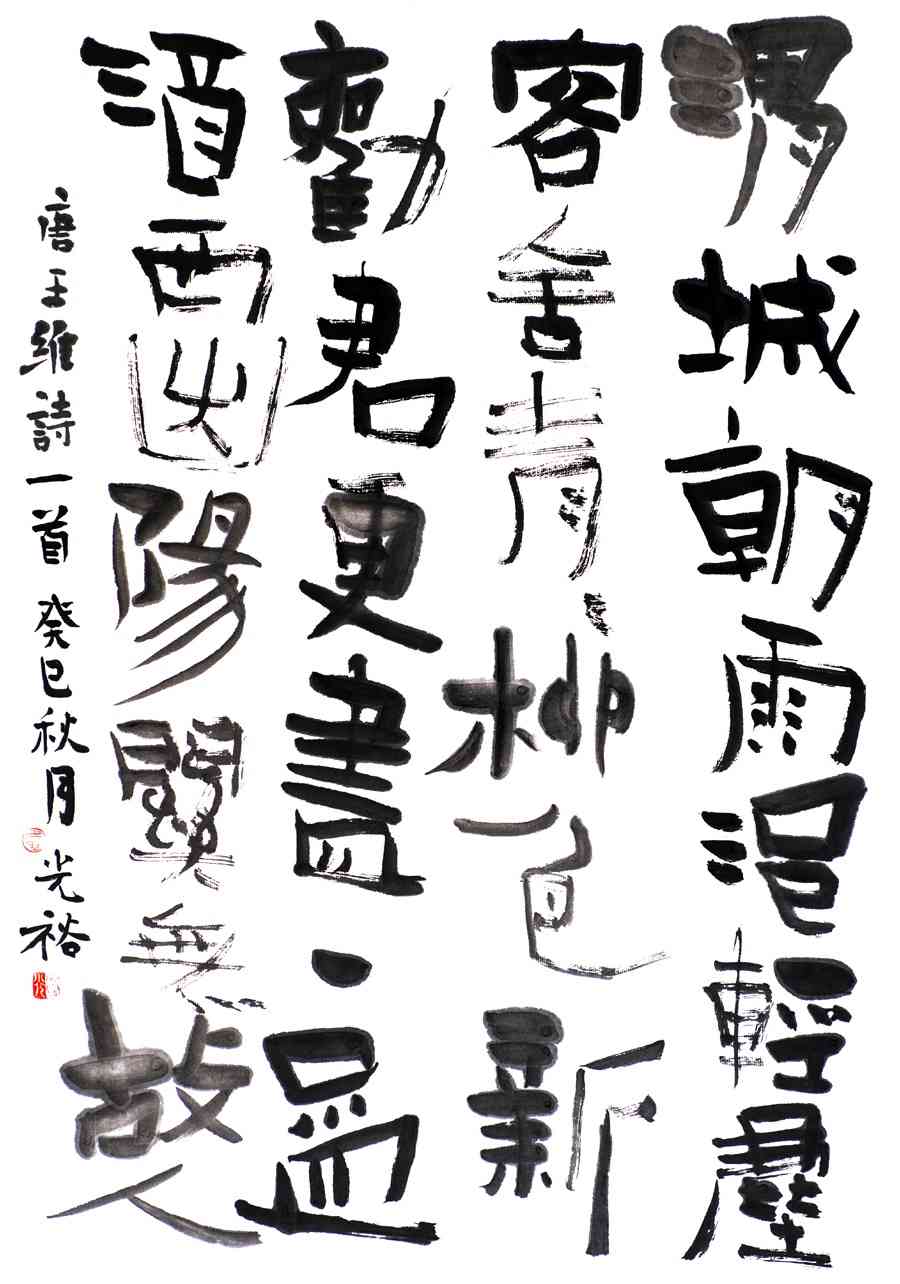 渭城朝雨浥輕塵
客舍青々柳色新
勸君更盡一盃
酒西出陽關無故人
唐王維詩一首 癸巳秋月 光裕